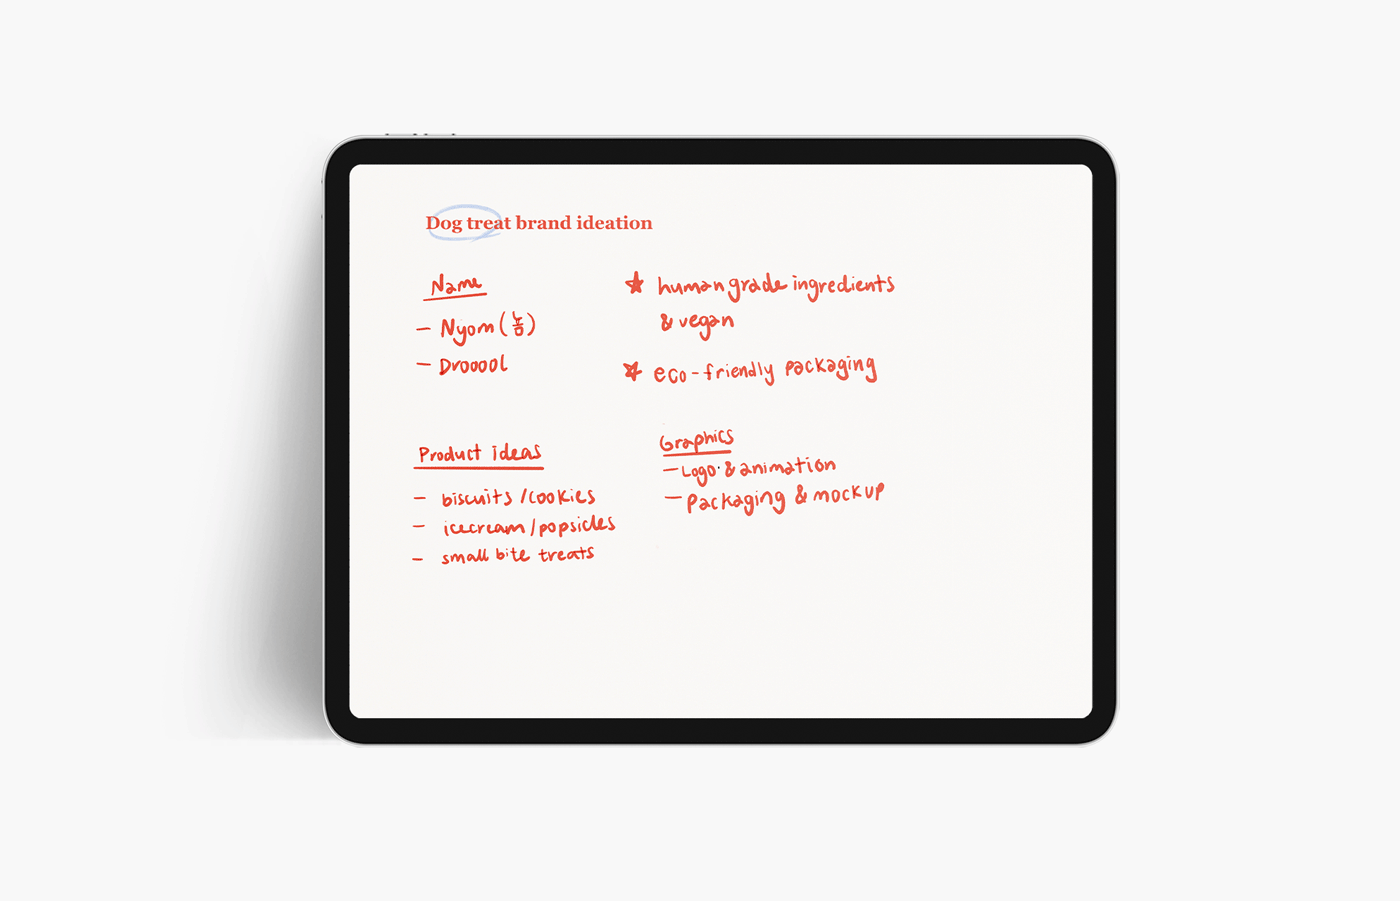 Dog treat brand ideation
Name
- Nyom (뇸)
- Drooool
★ human grade ingredients
& vegan
★ eco-friendly packaging
Product ideas
- biscuits / cookies
- icecream / popsicles
- small bite treats
Graphics
- Logo & animation
- Packaging & mockup